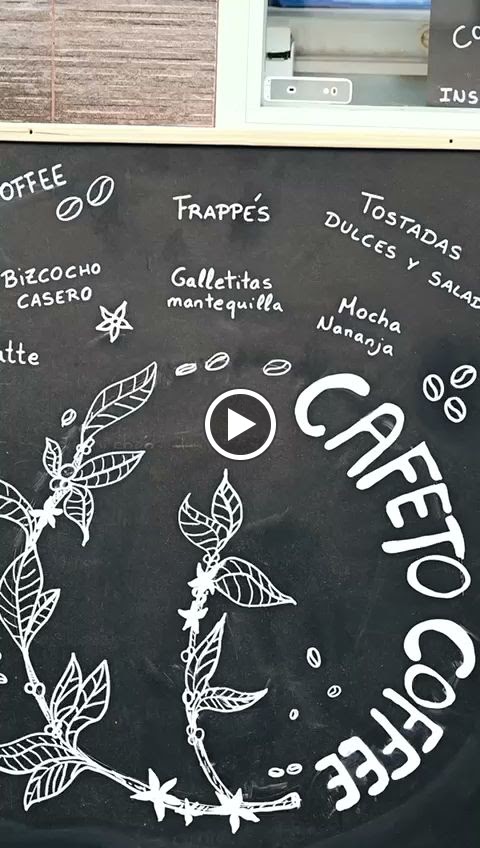 CO
INS
OFFEE
FRAPPÉS
TOSTADAS
DULCES Y SALAD
BIZCOCHO
CASERO
Galletitas
mantequilla
Mocha
Nananja
atte
CAFETO COFFEE